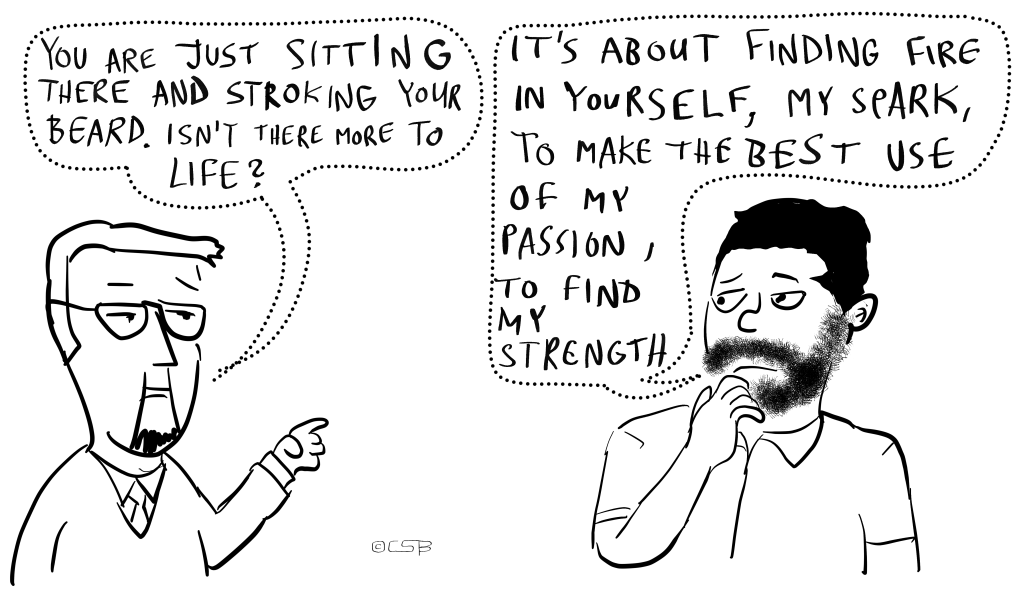 YOU ARE JUST SITTING
THERE AND STROKING YOUR
BEARD. ISN'T THERE MORE TO
LIFE?
IT'S ABOUT FINDING FIRE
IN YOURSELF, MY SPARK,
TO MAKE THE BEST USE
OF MY
PASSION,
TO FIND
MY
STRENGTH
©CSB